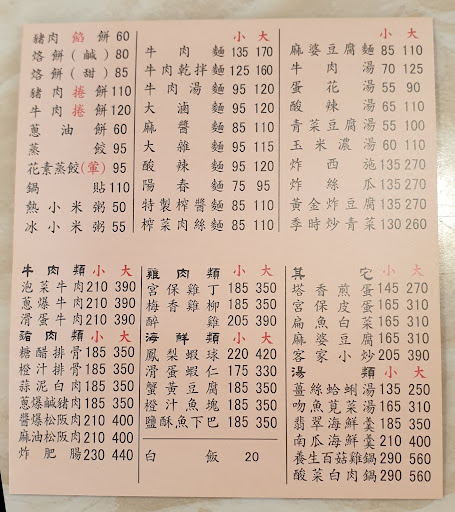 豬肉餡餅 60
烙餅(鹹) 80
烙餅(甜) 85
豬肉捲餅 110
牛肉捲餅 120
蔥油餅 60
蒸餃 95
花素蒸餃(葷) 95
鍋貼 110
熱小米粥 50
冰小米粥 55
小 大
牛肉麵 135 170
牛肉乾拌麵 125 160
牛肉湯麵 95 120
大滷麵 95 120
麻醬麵 85 110
大雜麵 95 115
酸辣麵 95 120
陽春麵 75 95
特製榨醬麵 85 110
榨菜肉絲麵 85 110
小 大
麻婆豆腐麵 85 110
牛肉湯 70 125
蛋花湯 55 90
酸辣湯 65 110
青菜豆腐湯 55 100
玉米濃湯 60 110
炸西施 135 270
炸絲瓜 135 270
黃金炸豆腐 135 270
季時炒青菜 130 260
牛肉類 小 大
泡菜牛肉 210 390
蔥爆牛肉 210 390
滑蛋牛肉 210 390
豬肉類 小 大
糖醋排骨 185 350
橙汁排骨 185 350
蒜泥白肉 185 350
蔥爆鹹豬肉 185 350
醬爆松阪肉 210 400
麻油松阪肉 210 400
炸肥腸 230 440
雞肉類 小 大
宮保雞丁 185 350
梅香雞柳 185 350
醉雞 205 390
海鮮類 小 大
鳳梨蝦球 220 420
滑蛋蝦仁 175 330
蟹黃豆腐 185 350
橙汁魚塊 185 350
鹽酥魚下巴 185 350
白飯 20
其它 小 大
塔香煎蛋 145 270
宮保皮蛋 160 310
扁魚白菜 165 310
麻婆豆腐 160 310
客家小炒 205 390
湯類 小 大
薑絲蛤蜊湯 135 250
吻魚莧菜湯 165 310
翡翠海鮮羹 210 410
南瓜海鮮羹 210 410
養生百菇雞鍋 290 560
酸菜白肉鍋 290 560